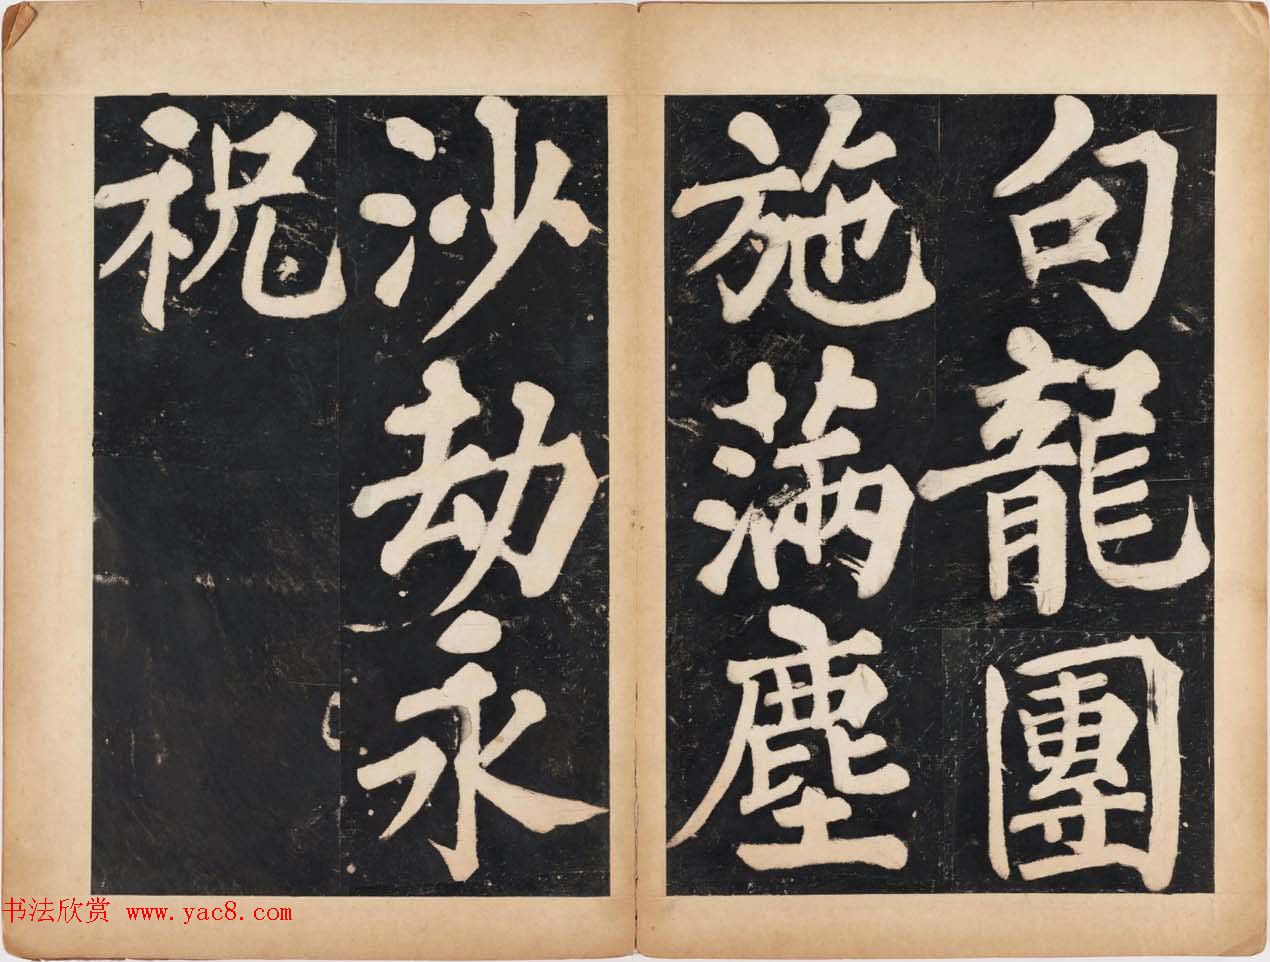 句龍團
施滿塵
沙劫永
祝
书法欣赏 www.yac8.com